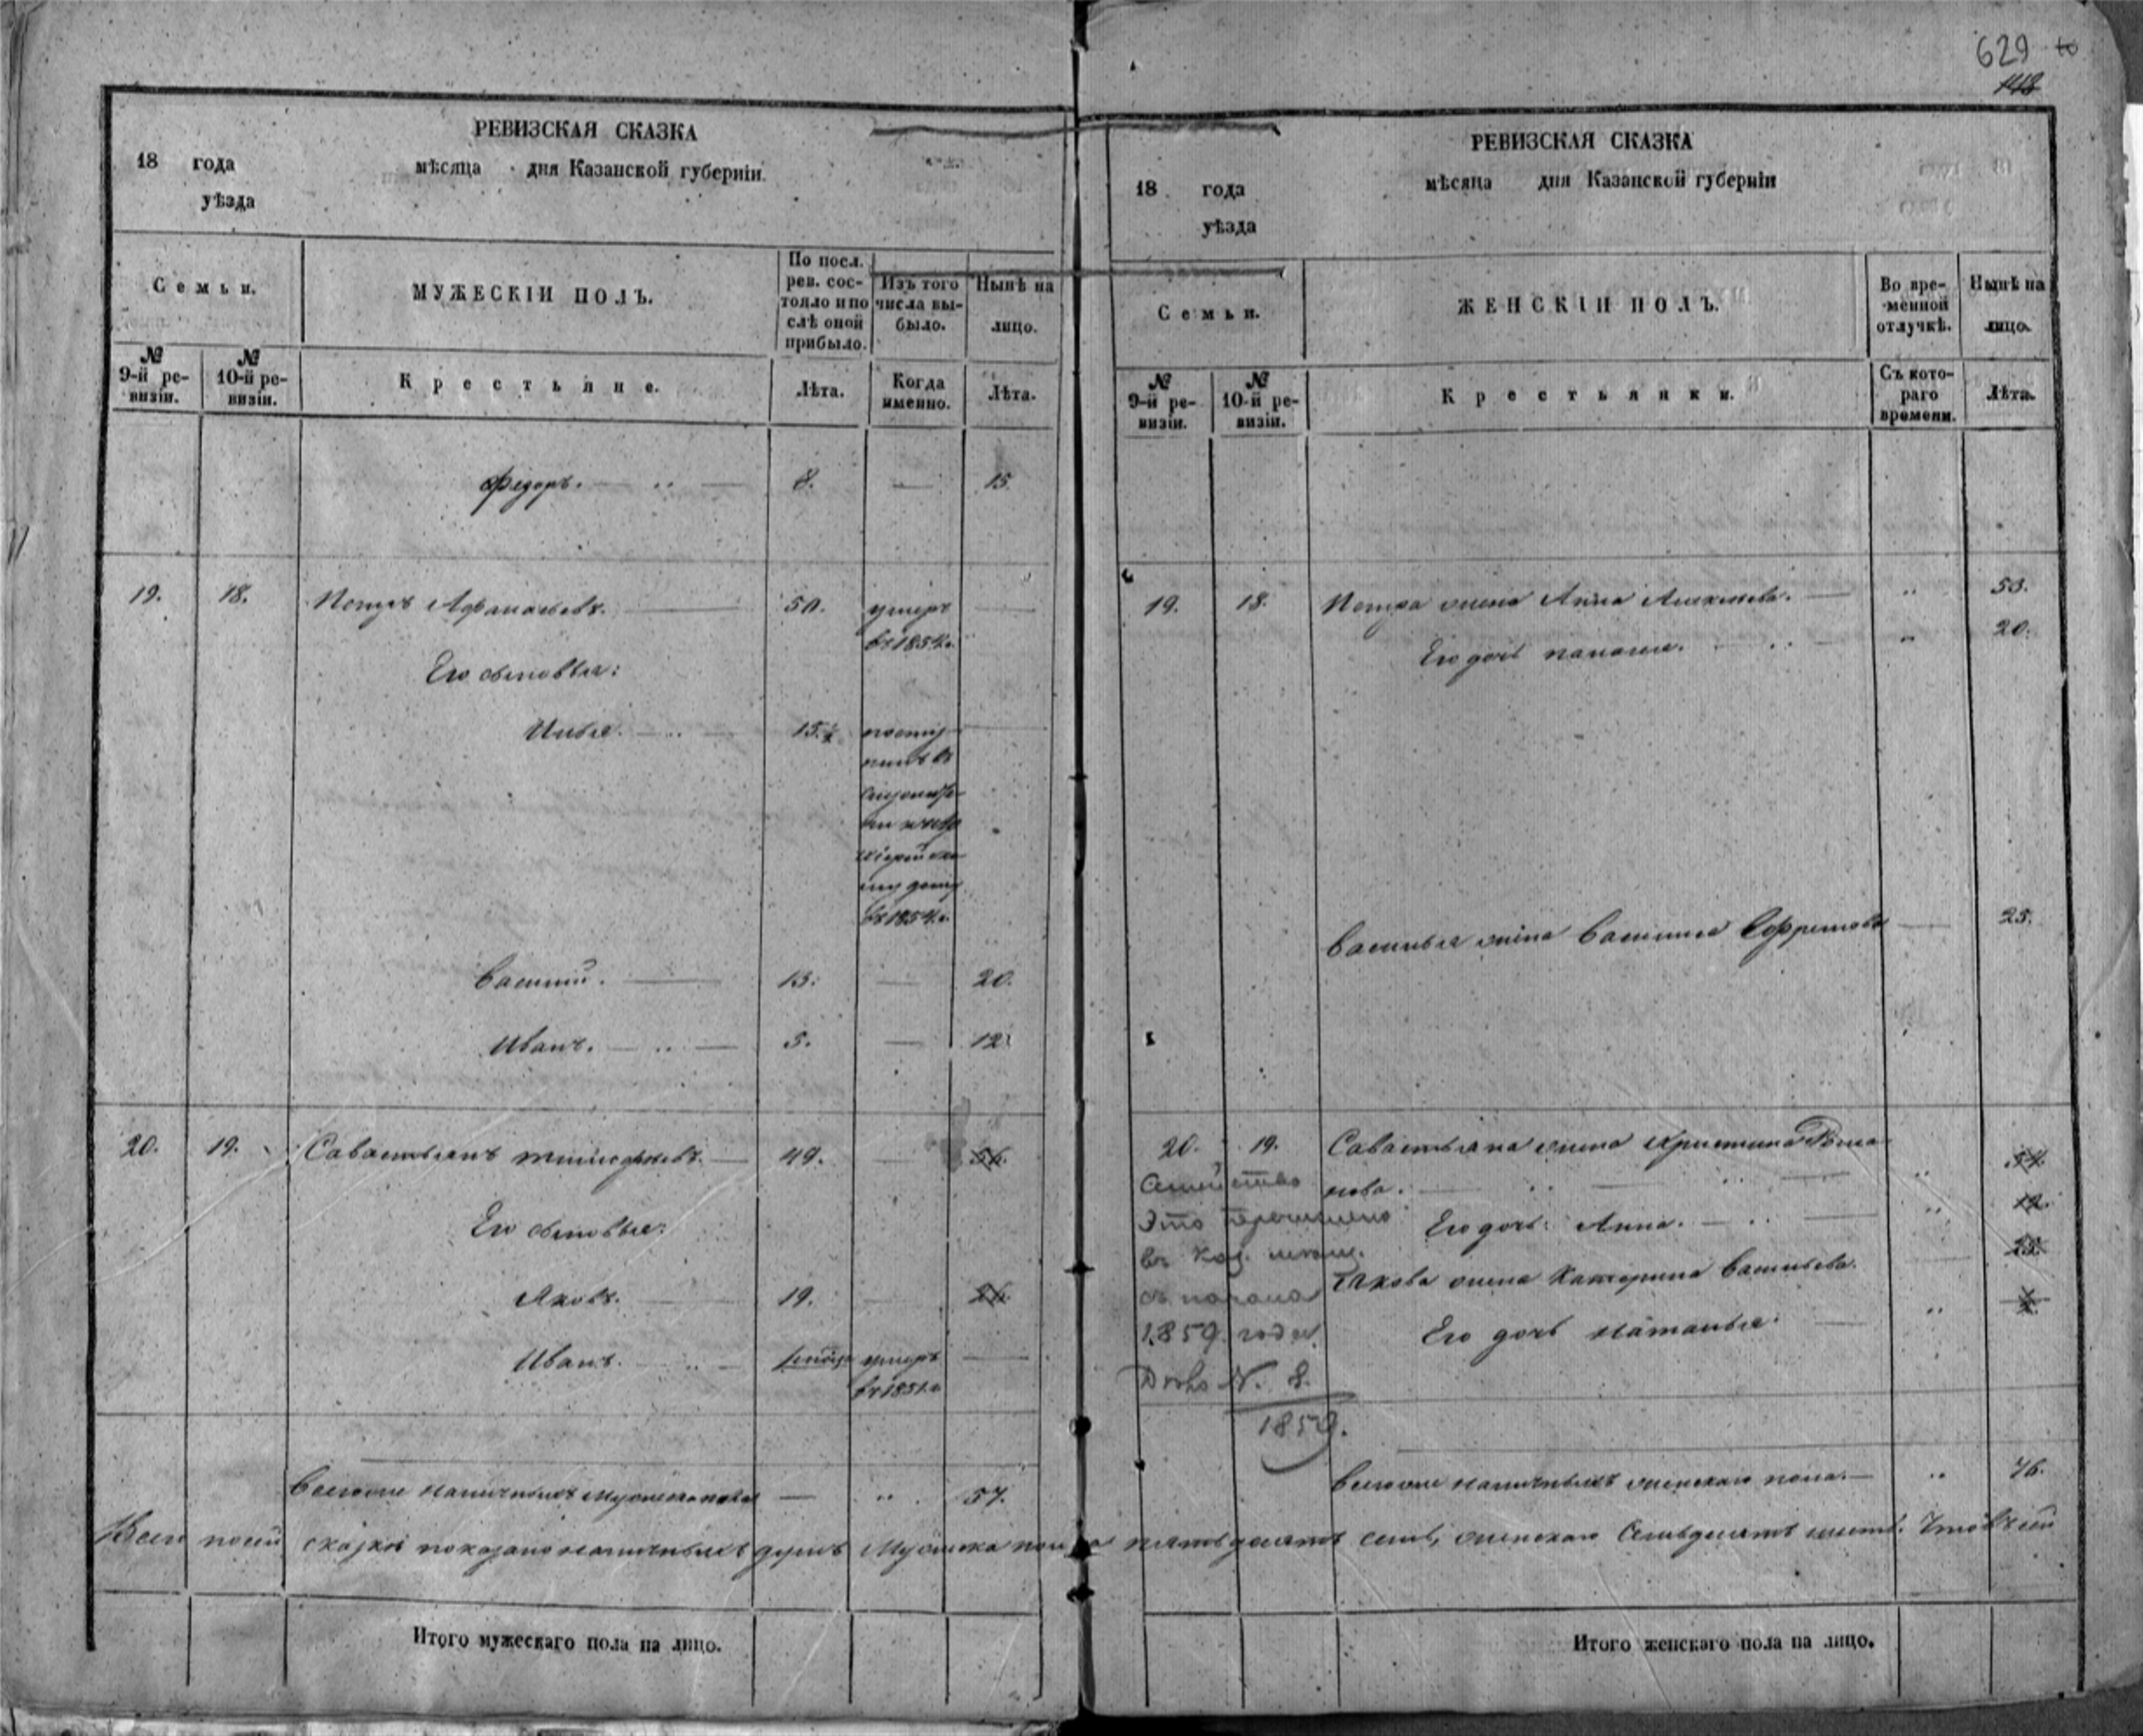 629
118
РЕВИЗСКАЯ СКАЗКА
18 года мѣсяца дня Казанской губерніи.
уѣзда
Семьи.
МУЖЕСКІЙ ПОЛЪ.
По посл. рев. состояло и послѣ оной прибыло.
Изъ того числа выбыло.
Нынѣ на лицо.
№ 9-й ревизіи.
№ 10-й ревизіи.
Крестьяне.
Лѣта.
Когда именно.
Лѣта.
Федоръ. 8. — 15.
19. 18. Петръ Афанасьевъ. 50. умеръ —
въ 1854 г.
Его сыновья:
Илья. 15½ посту-
пилъ въ
служите-
ли къ
дому
въ 1854 г.
Василій. 13. — 20.
Иванъ. 5. — 12.
20. 19. Савастьянъ 49. — 56.
Его сыновья:
Яковъ. 19. — 26.
Иванъ. умеръ —
въ 1851 г.
Всего наличныхъ мужеска пола — 57.
РЕВИЗСКАЯ СКАЗКА
18 года мѣсяца дня Казанской губерніи
уѣзда
Семьи.
ЖЕНСКІЙ ПОЛЪ.
Во временной отлучкѣ.
Нынѣ на лицо.
№ 9-й ревизіи.
№ 10-й ревизіи.
Крестьянки.
Съ котораго времени.
Лѣта.
19. 18. Петра жена Анна 53.
Его дочь 20.
Василья жена Ефремова — 25.
20. 19. Савастьяна жена Кристина Рома-
нова. 54.
Его дочь: Анна. 12.
Якова жена Катерина Васильева. 25.
Его дочь Наталья.
Семейство
это перечислено
въ
съ начала
1859 года
Дѣло №. 8.
1859.
Всего наличныхъ женскаго пола. — 76.
Всего по сей сказкѣ показано наличныхъ душъ мужеска пола пятьдесятъ семь, женскаго семьдесятъ шесть. Что въ сей
Итого мужескаго пола на лицо.
Итого женскаго пола на лицо.